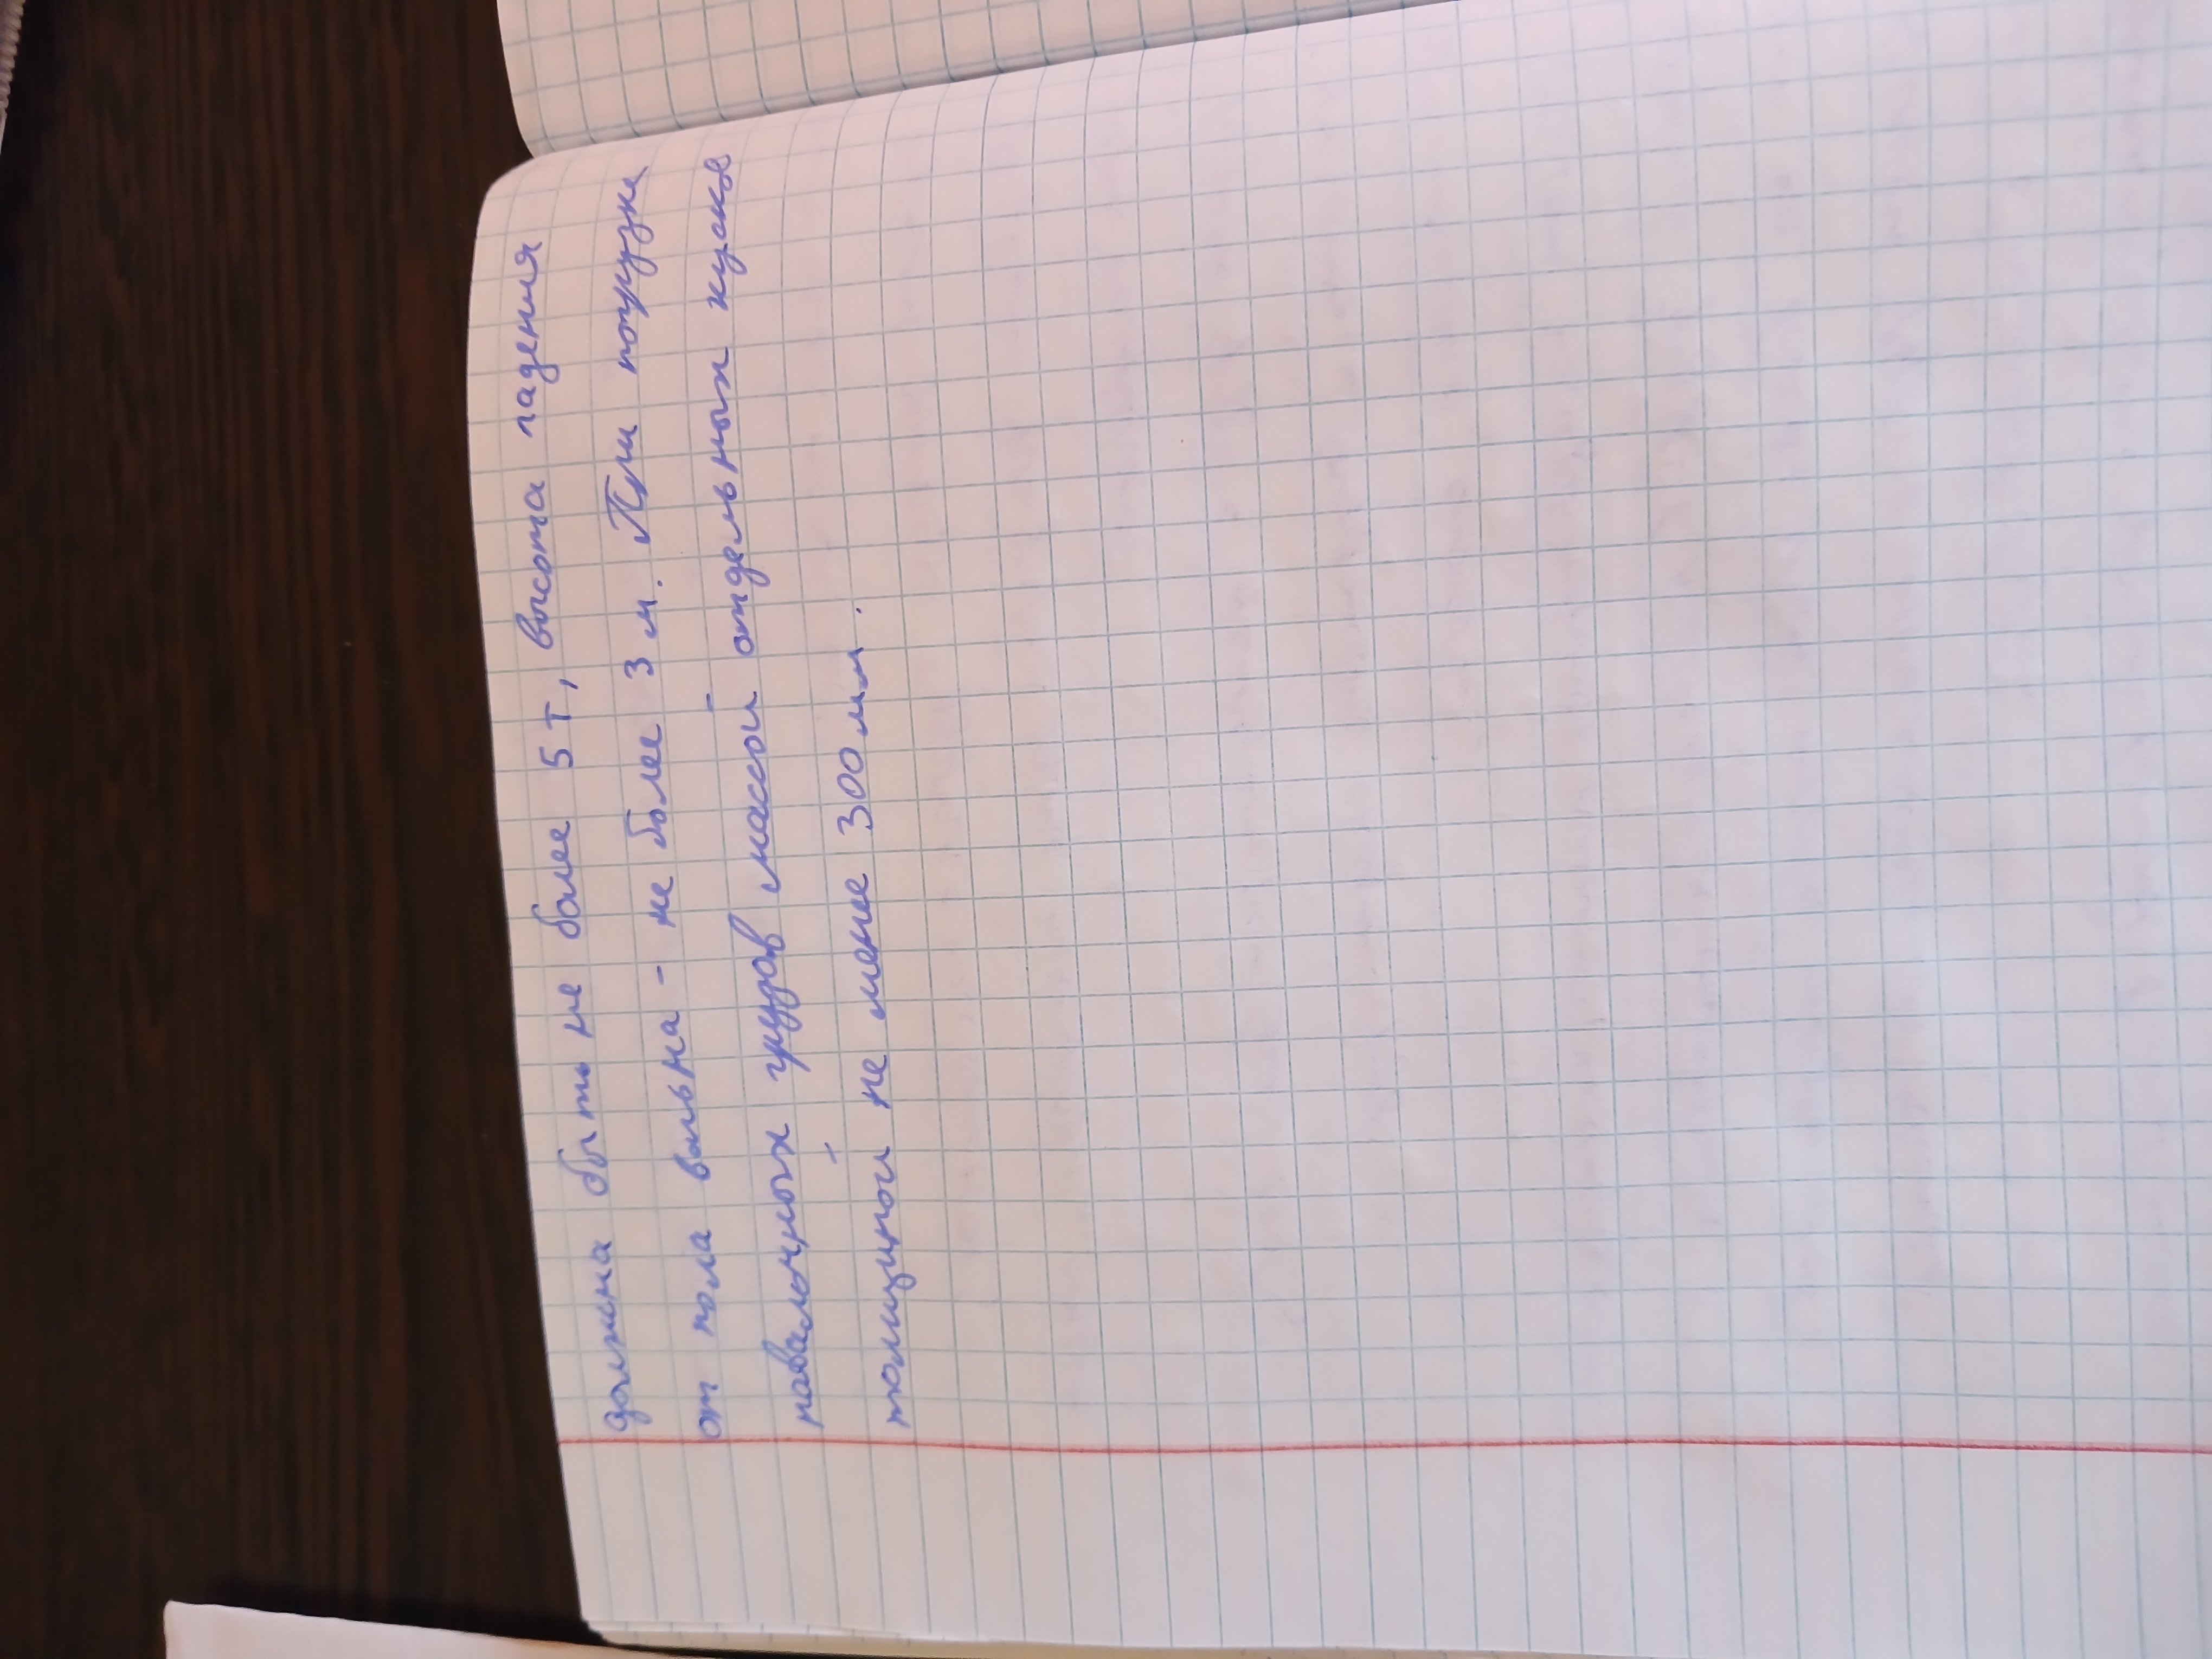 должна быть не более 5 т, высота падения
от пола вольна - не более 3 м. При погрузке
навалочных грузов массой отдельных кусков
толщиной не менее 300 мм.